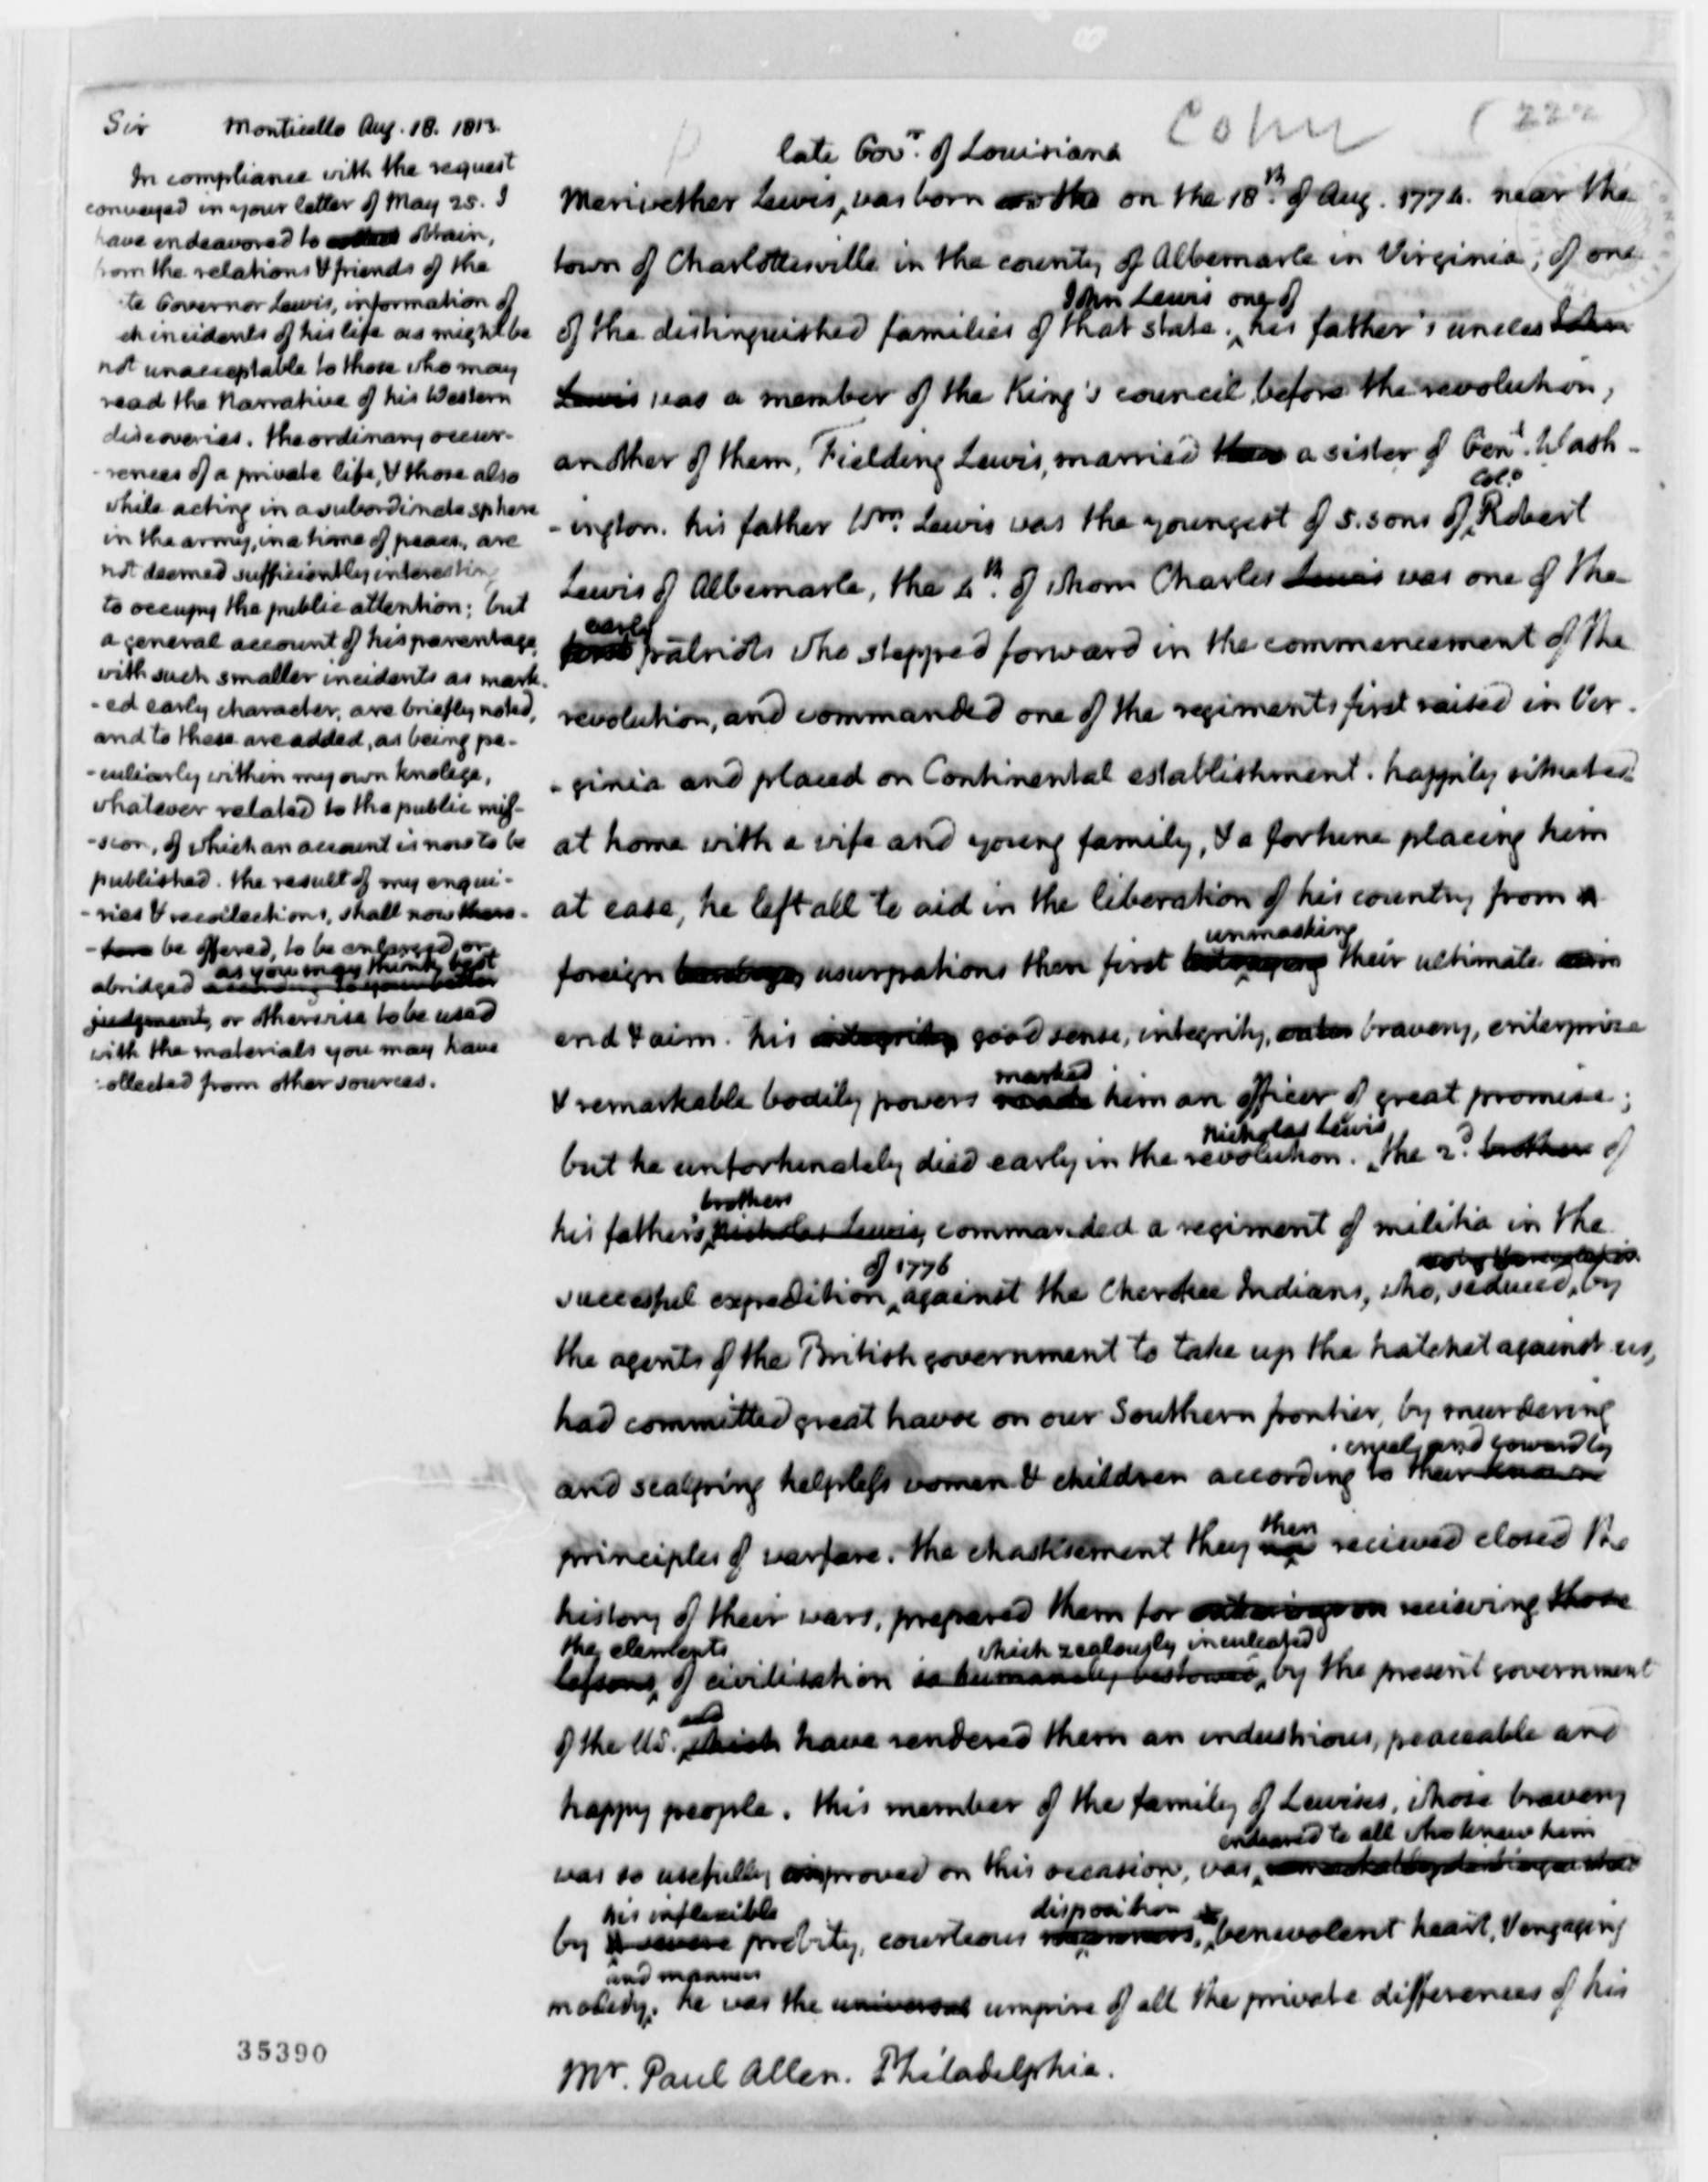 Sir Monticello Aug. 18. 1813.
In compliance with the request
conveyed in your letter of May 25. I
have endeavored to obtain,
from the relations & friends of the
te Governor Lewis, information of
ch incidents of his life as might be
not unacceptable to those who may
read the Narrative of his Western
discoveries. the ordinary occur-
-rences of a private life, & those also
while acting in a subordinate sphere
in the army, in a time of peace, are
not deemed sufficiently interesting
to occupy the public attention; but
a general account of his parentage,
with such smaller incidents as mark-
-ed early character, are briefly noted,
and to these are added, as being pe-
-culiarly within my own knolege,
whatever related to the public mis-
-sion, of which an account is now to be
published. the result of my enqui-
-ries & recollections, shall now there-
-fore be offered, to be enlarged or
as you may think best
abridged according to your better
judgment, or otherwise to be used
with the materials you may have
collected from other sources.
Cohn
(222
late Govr. of Louisiana
Meriwether Lewis, was born on the on the 18th. of Aug. 1774. near the
town of Charlottesville in the county of Albemarle in Virginia, of one
John Lewis one of
of the distinguished families of that state. his father's uncles John
Lewis was a member of the King's council, before the revolution,
another of them, Fielding Lewis, married a sister of Genl. Wash-
Colo.
-ington. his father Wm. Lewis was the youngest of 5. sons of Robert
Lewis of Albemarle, the 4th. of whom Charles Lewis was one of the
early
first patriots who stepped forward in the commencement of the
revolution, and commanded one of the regiments first raised in Vir-
-ginia and placed on Continental establishment. happily situated
at home with a wife and young family, & a fortune placing him
at ease, he left all to aid in the liberation of his country from a
unmasking
foreign bondage, usurpations then first their ultimate aim
end & aim. his integrity good sense, integrity, bravery, enterprize
marked
& remarkable bodily powers made him an officer of great promise;
Nicholas Lewis
but he unfortunately died early in the revolution. the 2d. brother of
brothers
his father's Nicholas Lewis, commanded a regiment of militia in the
of 1776
successful expedition against the Cherokee Indians, who, seduced by
the agents of the British government to take up the hatchet against us,
had committed great havoc on our Southern frontier, by murdering
cruel and cowardly
and scalping helpless women & children according to their known
then
principles of warfare. the chastisement they received closed the
history of their wars, prepared them for entering on recieving those
the elements
which zealously inculcated
lessons of civilisation so humanely bestowed, by the present government
and
of the US. which have rendered them an industrious, peaceable and
happy people. this member of the family of Lewises, whose bravery
endeared to all who knew him
was so usefully improved on this occasion, was remarkably distinguished
his inflexible
disposition
by a severe probity, courteous manners, benevolent heart, & engaging
and manners
modesty. he was the universal umpire of all the private differences of his
Mr. Paul Allen. Philadelphia.
35390